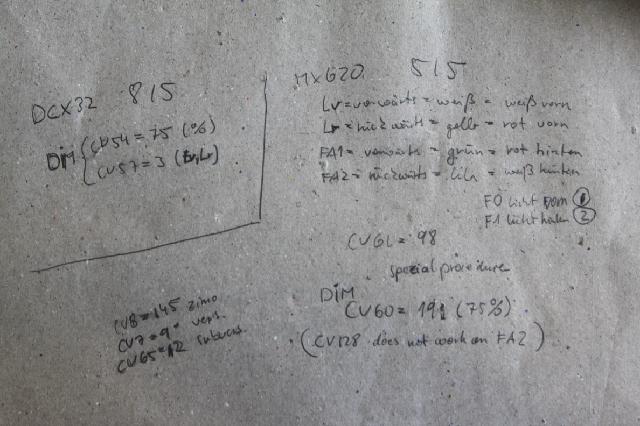 DCX32 815
DIM CV54 = 75 (%)
CV57 = 3
MX620 515
Lv = vorwärts = weiß = weiß vorn
Lr = rückwärts = gelb = rot vorn
FA1 = vorwärts = grün = rot hinten
FA2 = rückwärts = lila = weiß hinten
F0 licht vorn 1
F1 licht hinten 2
CV61 = 98
spezial procedure
DIM
CV60 = 191 (75%)
(CV128 does not work on FA2)
CV8 = 145 zimo
CV7 = 9 vers.
CV65 = 12 subvers.